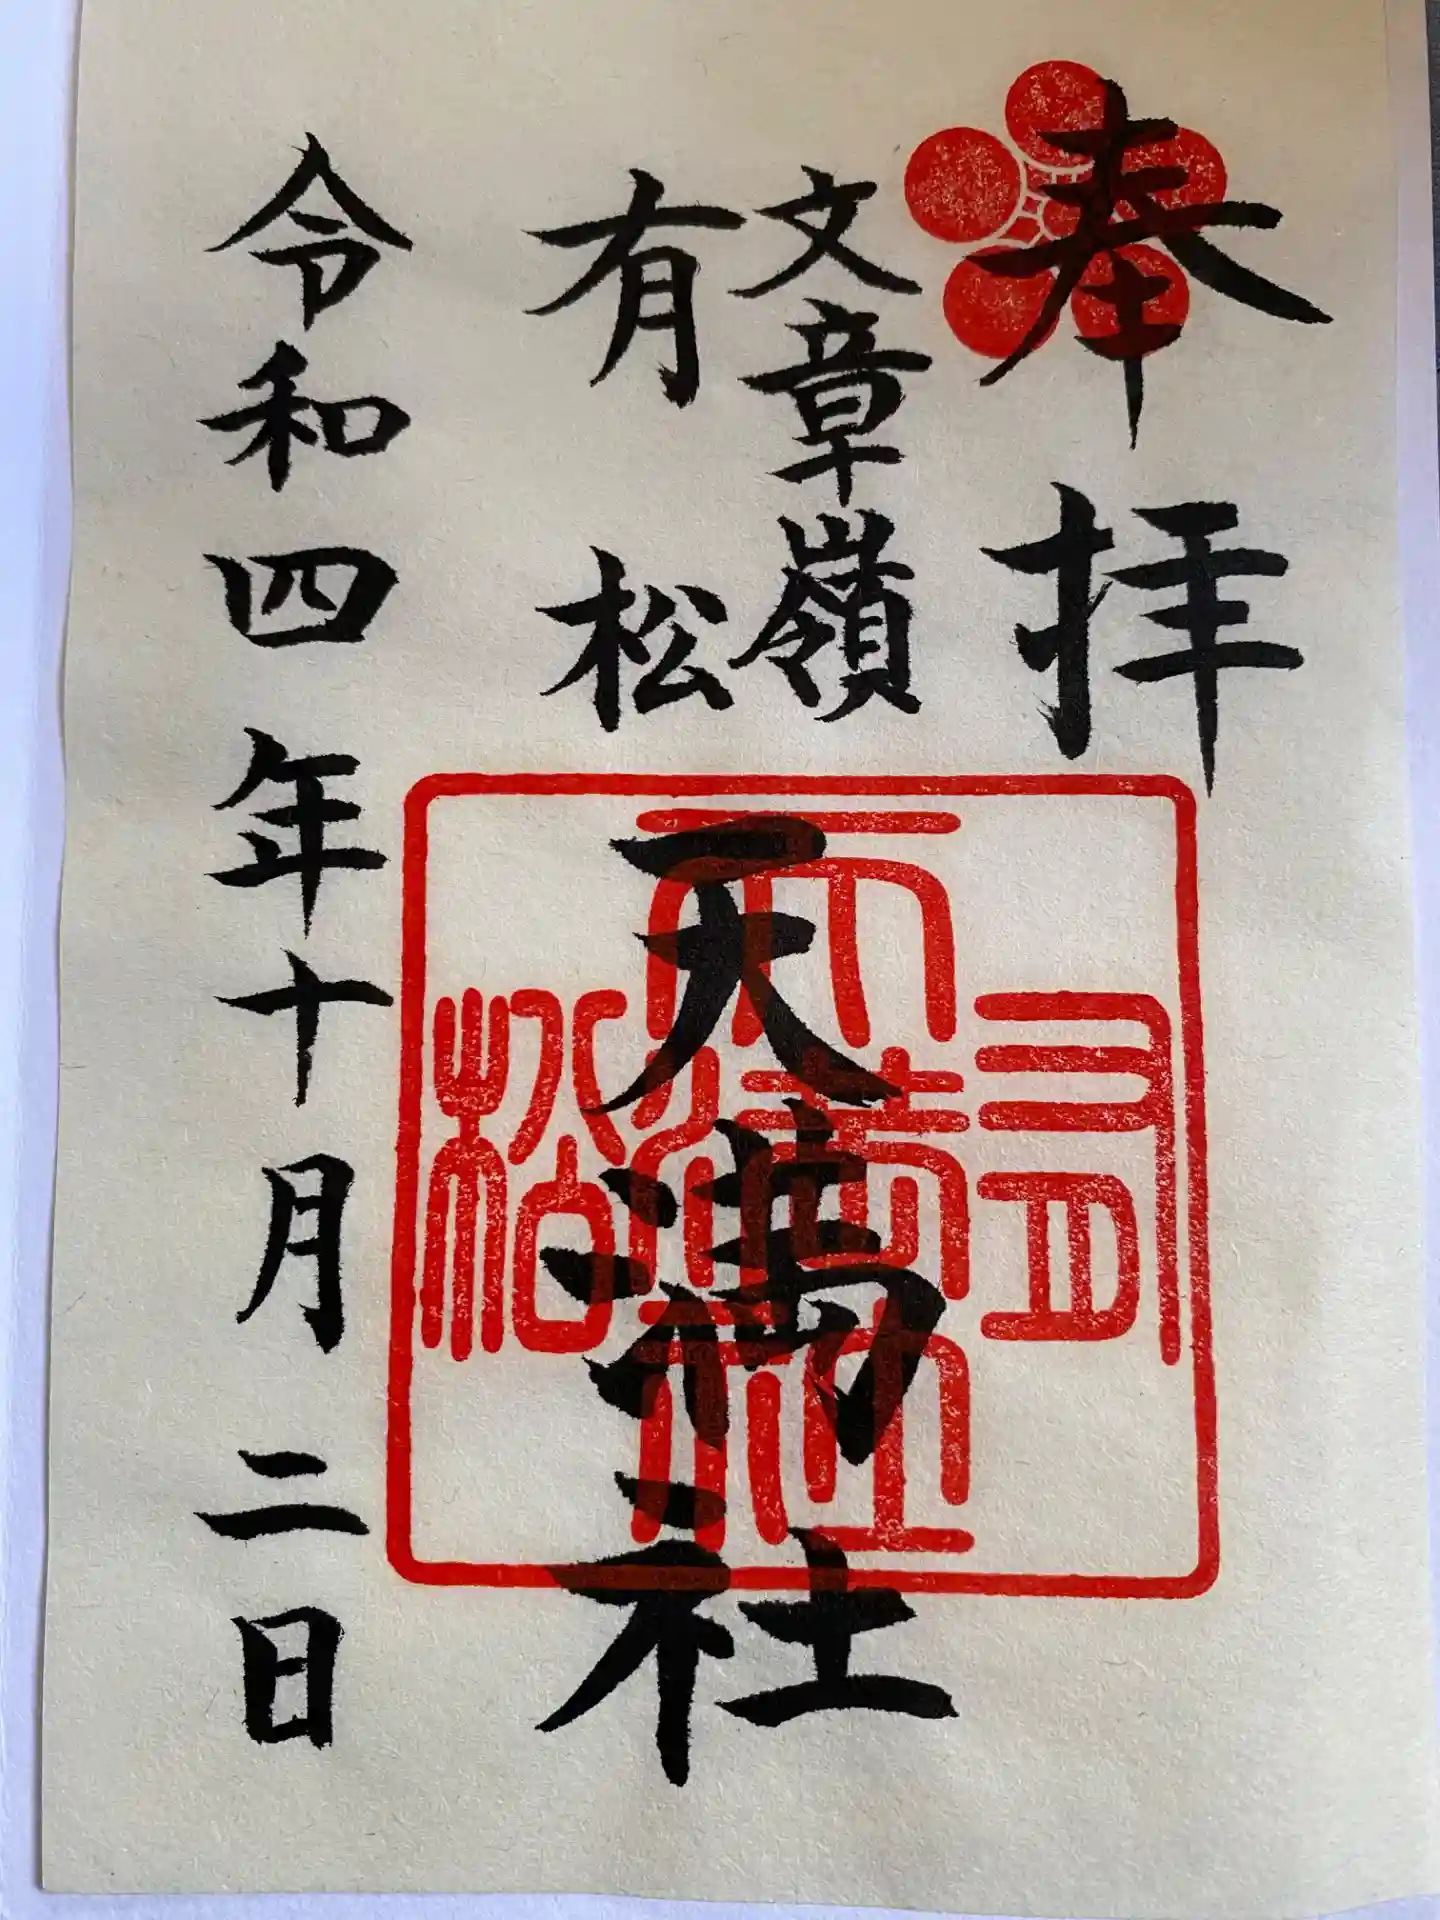 奉拝
文章嶺
有松
天満社
令和四年十月二日
有松
天満社